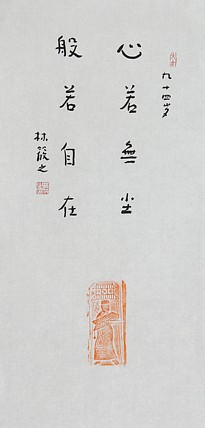 九十四岁
心若無尘
般若自在
林筱之